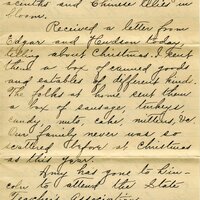 acinths and Chinese lilies in
bloom.
Received a letter from
Edgar and Hudson today,
telling about Christmas. I sent
them a box of canned goods
and eatables of different kinds.
The folks at home sent them
a box of sausage, turkeys
candy, nuts, cake, mittens, &c.
Our family never was so
scattered before at Christmas
as this year.
Amy has gone to Lin-
coln to attend the State
Teacher's Association